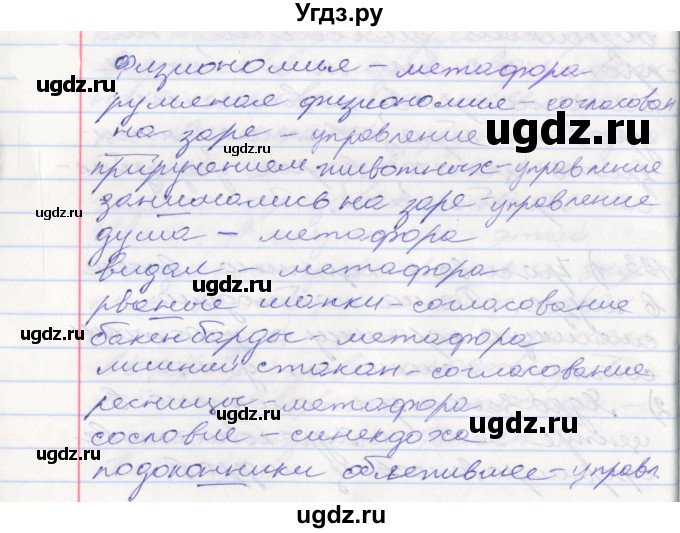 Угдз.ру
физиономья - метафора
румяная физиономия - согласован
на заре - управление
приручением животных - управление
занимались на заре - управление
душа - метафора
видал - метафора
рваные шапки - согласование
бакенбарды - метафора
стакан - согласование
ресницы - метафора
сословие - синекдоха
подоконники облепившее - управл
ugdz.ru
ugdz.ru
ugdz.ru
ugdz.ru
ugdz.ru
ugdz.ru
ugdz.ru
ugdz.ru
ugdz.ru
ugdz.ru
ugdz.ru